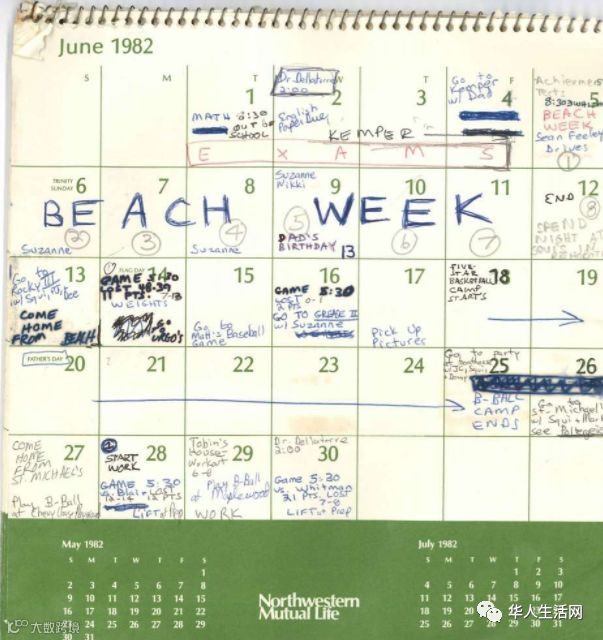 June 1982
S M T W T F S
1
MATH 8:30
OUT OF
SCHOOL
Dr. Dellatorre
2:00
2
English
Paper Due
3
KEMPER
Go to
Kemper
w/ Dad
4
Achievement
Tests
8:30
5
BEACH
WEEK
Sean Feeley
Dr. Ives
1
E X A M S
TRINITY
SUNDAY 6
7
8
Suzanne
Nikki
9
10
11
12
BEACH WEEK
END
8
Suzanne
2
3
Suzanne
4
5
DAD'S
BIRTHDAY
13
6
7
SPEND
NIGHT AT
13
Go to
Rocky III
w/ Squi, PJ,
COME
HOME
FROM BEACH
FLAG DAY
14
GAME 5:30
LOST 48-39
11 PTS.
WEIGHTS
GO
15
Go to
Matt's Baseball
Game
16
GAME 5:30
LOST
PTS
GO TO GREASE II
w/ Suzanne
17
Pick Up
Pictures
18
FIVE-
STAR
BASKETBALL
CAMP
STARTS
19
FATHER'S DAY
20
21
22
23
24
Go to party
25
B-BALL
CAMP
ENDS
26
Go to
St. Michael's
w/ Squi + Mark
see
27
COME
HOME
FROM
ST. MICHAEL'S
Play B-Ball
at Chevy Chase
28
START
WORK
GAME 5:30
Blair, LOST
PTS
LIFT at Prep
29
Tobin's
House-
Workout
6-8
Play B-Ball
at
WORK
30
Dr. Dellatorre
2:00
GAME 5:30
vs. Whitman
21 PTS. LOST
7-8
LIFT at Prep
May 1982
S M T W T F S
1
2 3 4 5 6 7 8
9 10 11 12 13 14 15
16 17 18 19 20 21 22
23 24 25 26 27 28 29
30 31
Northwestern
Mutual Life
July 1982
S M T W T F S
1 2 3
4 5 6 7 8 9 10
11 12 13 14 15 16 17
18 19 20 21
25 26 27 28 29 30 31
大数跨境
华人生活网